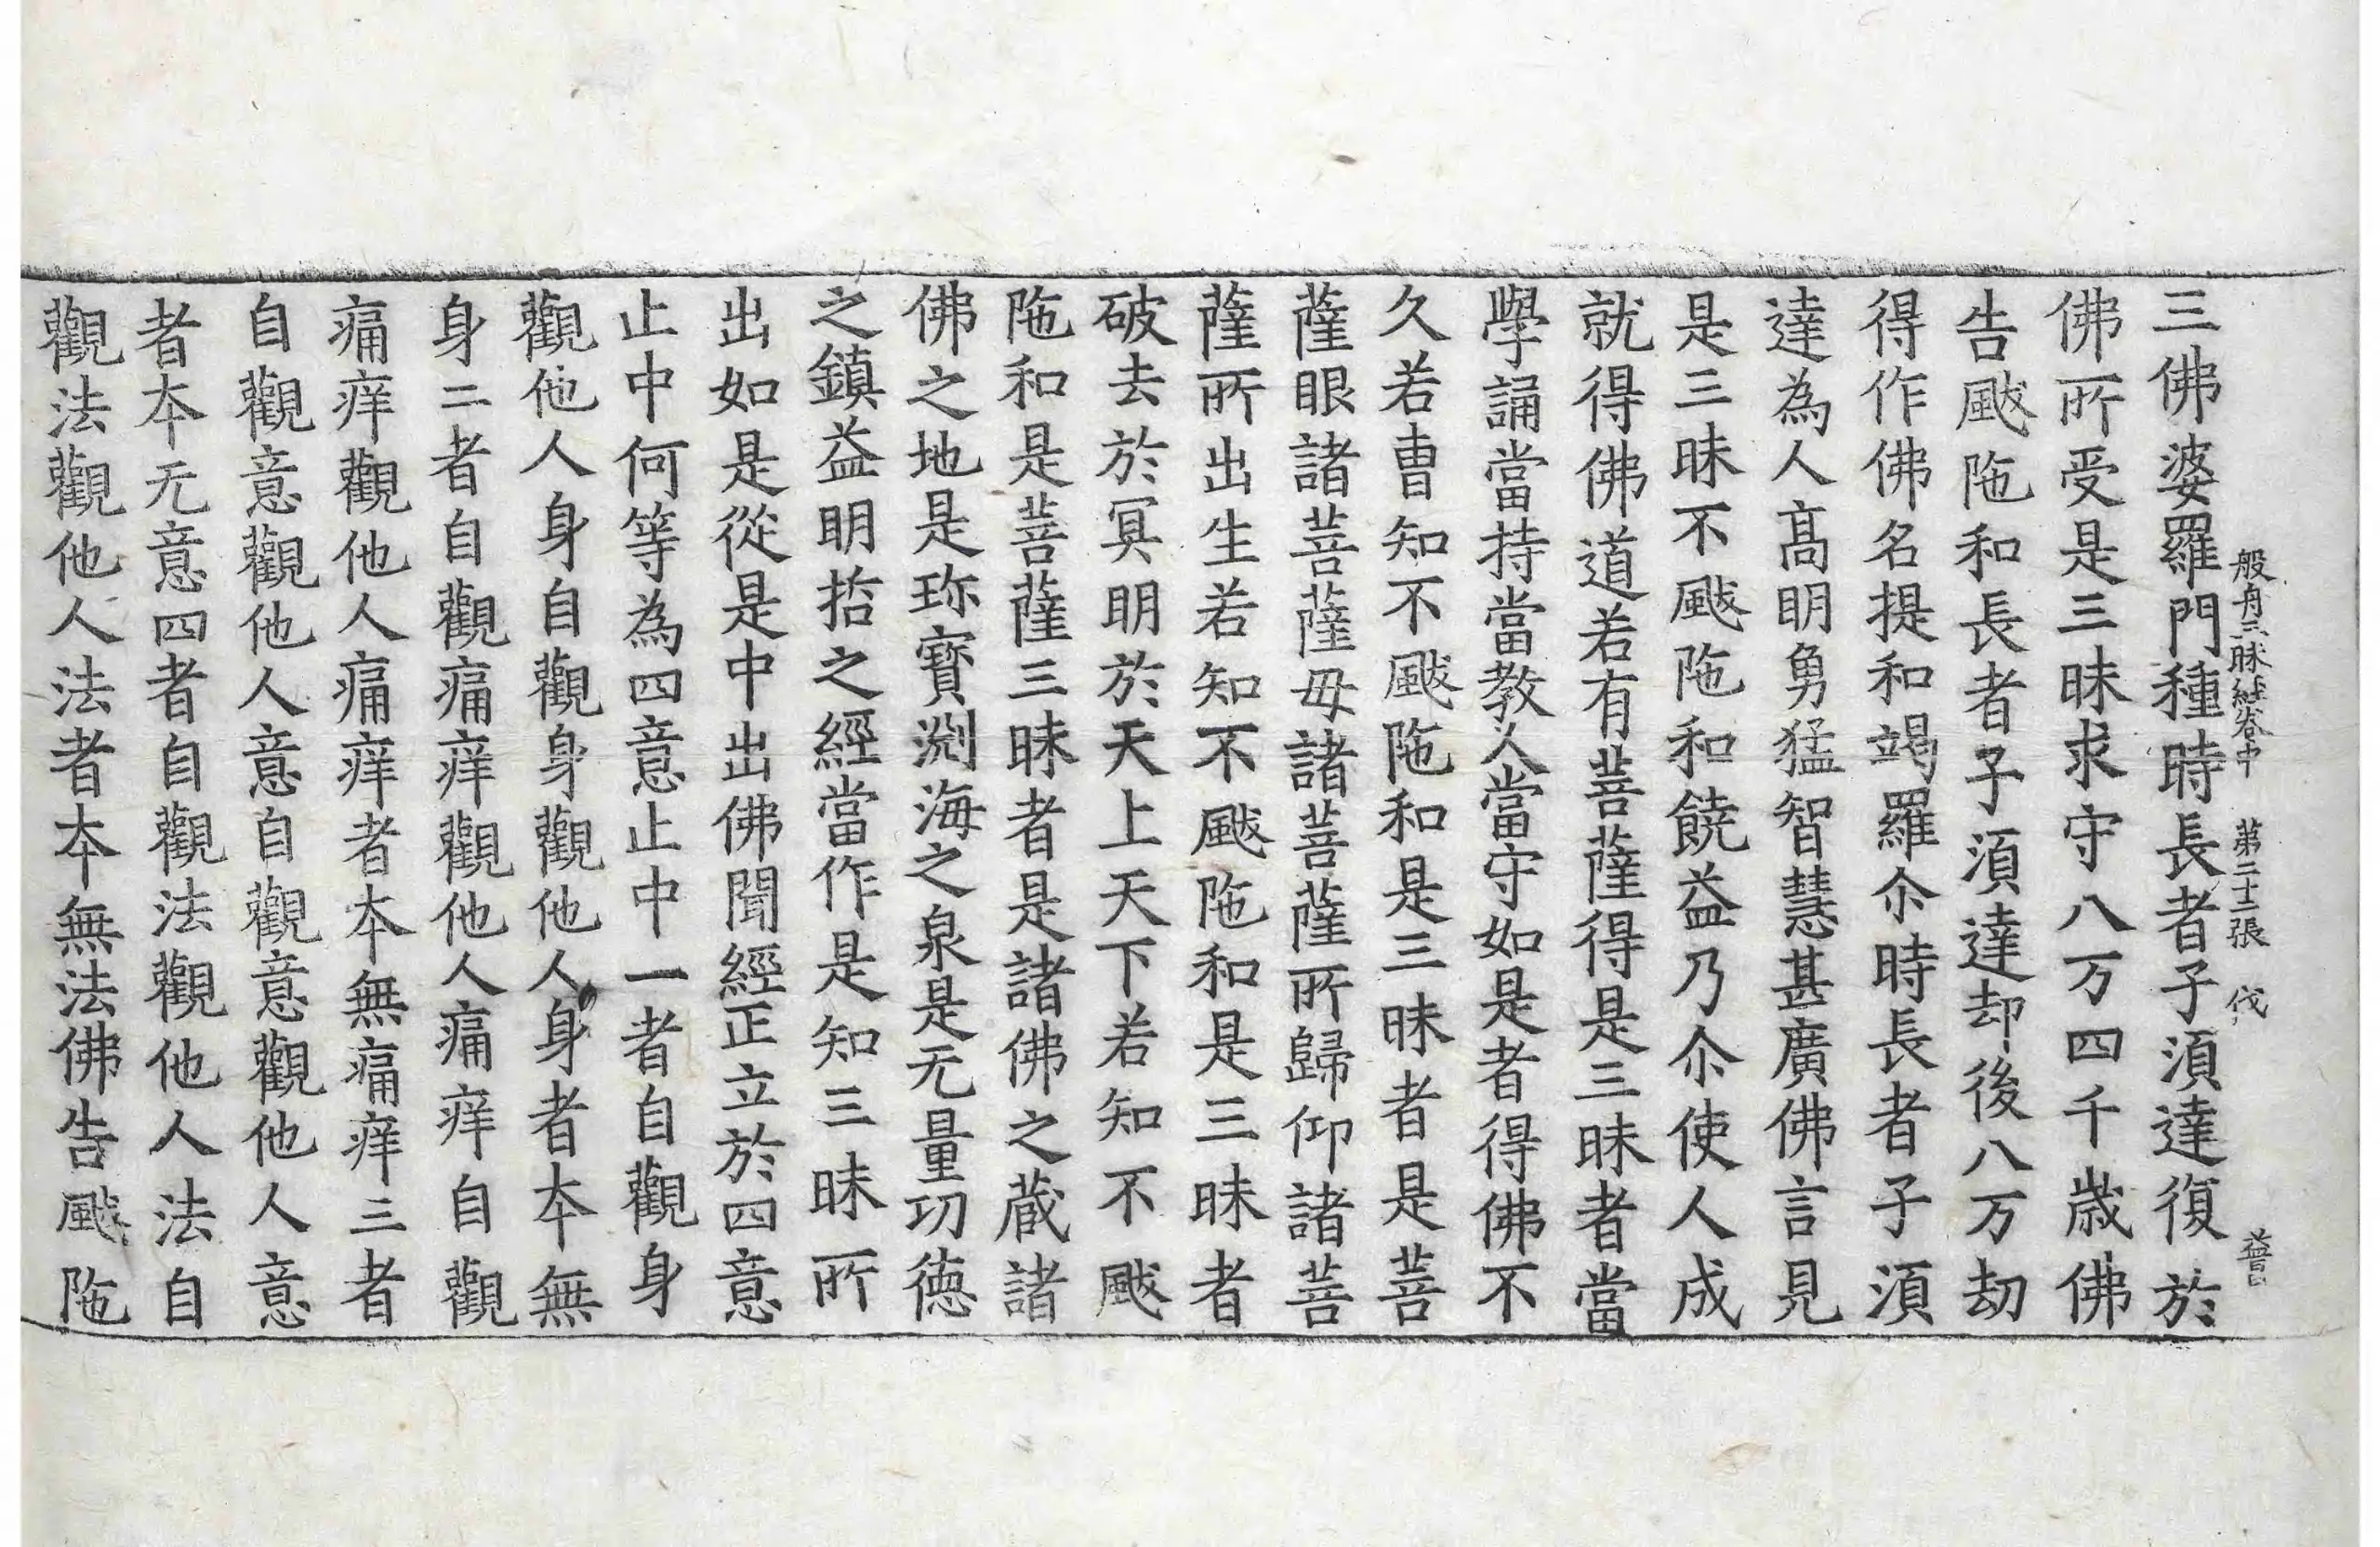 三佛婆羅門種時長者子湏達復於
般舟三昧経卷中 第二十三張 伐
佛所受是三昧求守八万四千歳佛
告颰陁和長者子湏達却後八万劫
得作佛名提和竭羅尒時長者子湏
達為人髙明勇猛智慧甚廣佛言見
是三昧不颰陁和饒益乃尒使人成
就得佛道若有菩薩得是三昧者當
學誦當持當教人當守如是者得佛不
久若曺知不颰陁和是三昧者是菩
薩眼諸菩薩母諸菩薩所歸仰諸菩
薩所出生若知不颰陁和是三昧者
破去於冥明於天上天下若知不颰
陁和是菩薩三昧者是諸佛之藏諸
佛之地是珎寳渕海之泉是无量㓛德
之鎮益明拾之經當作是知三昧所
出如是從是中出佛聞經正立於四意
止中何等為四意止中一者自觀身
觀他人身自觀身觀他人身者本無
身二者自觀痛痒觀他人痛痒自觀
痛痒觀他人痛痒者本無痛痒三者
自觀意觀他人意自觀意觀他人意
者本无意四者自觀法觀他人法自
觀法觀他人法者本無法佛告颰陁